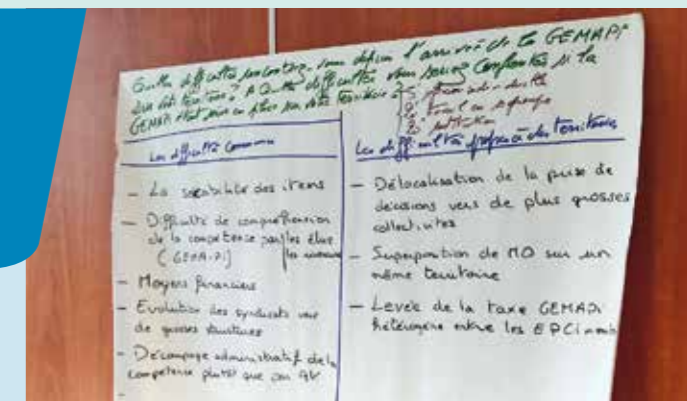 Quelles difficultés rencontrez-vous depuis l'arrivée de la GEMAPI
sur votre territoire ? Quelles difficultés vous seriez confrontés si la
GEMAPI était mise en place sur votre territoire ?
Les difficultés communes
Les difficultés propres à des territoires
- La sécabilité des items
- Difficulté de compréhension
de la compétence par les élus
(GEMA-PI)
- Moyens financiers
- Evolution des syndicats vers
de grosses structures
- Découpage administratif de la
compétence plutôt que par BV
- Délocalisation de la prise de
décisions vers de plus grosses
collectivités
- Superposition de MO sur un
même territoire
- Levée de la taxe GEMAPI
hétérogène entre les EPCI